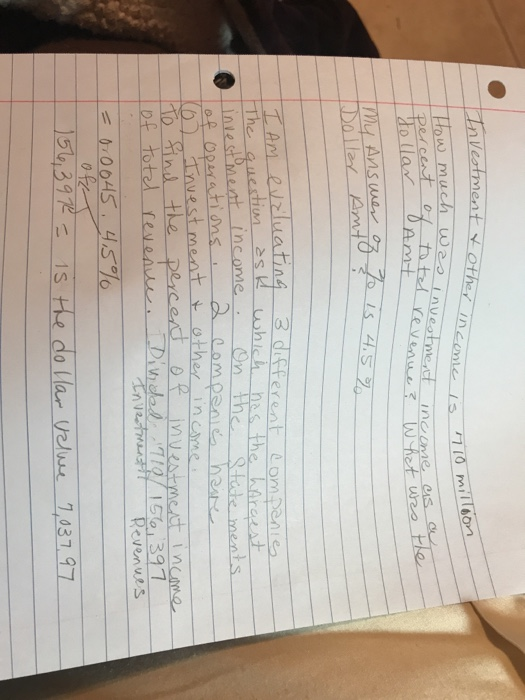 Investment & other income is 710 million
How much was investment income as a
percent of total revenue? What was the
dollar Amt
My Answer of % is 4.5%
Dollar Amt?
I Am evaluating 3 different companies
The question ask which has the largest
investment income. On the Statements
of operations. 2 companies have
(0) Investment & other income.
To find the percent of investment income
of total revenue. Divided 710/156,397
Investment Revenues
= 0.0045. 4.5%
of
156,397 = is the dollar value 7,037.97